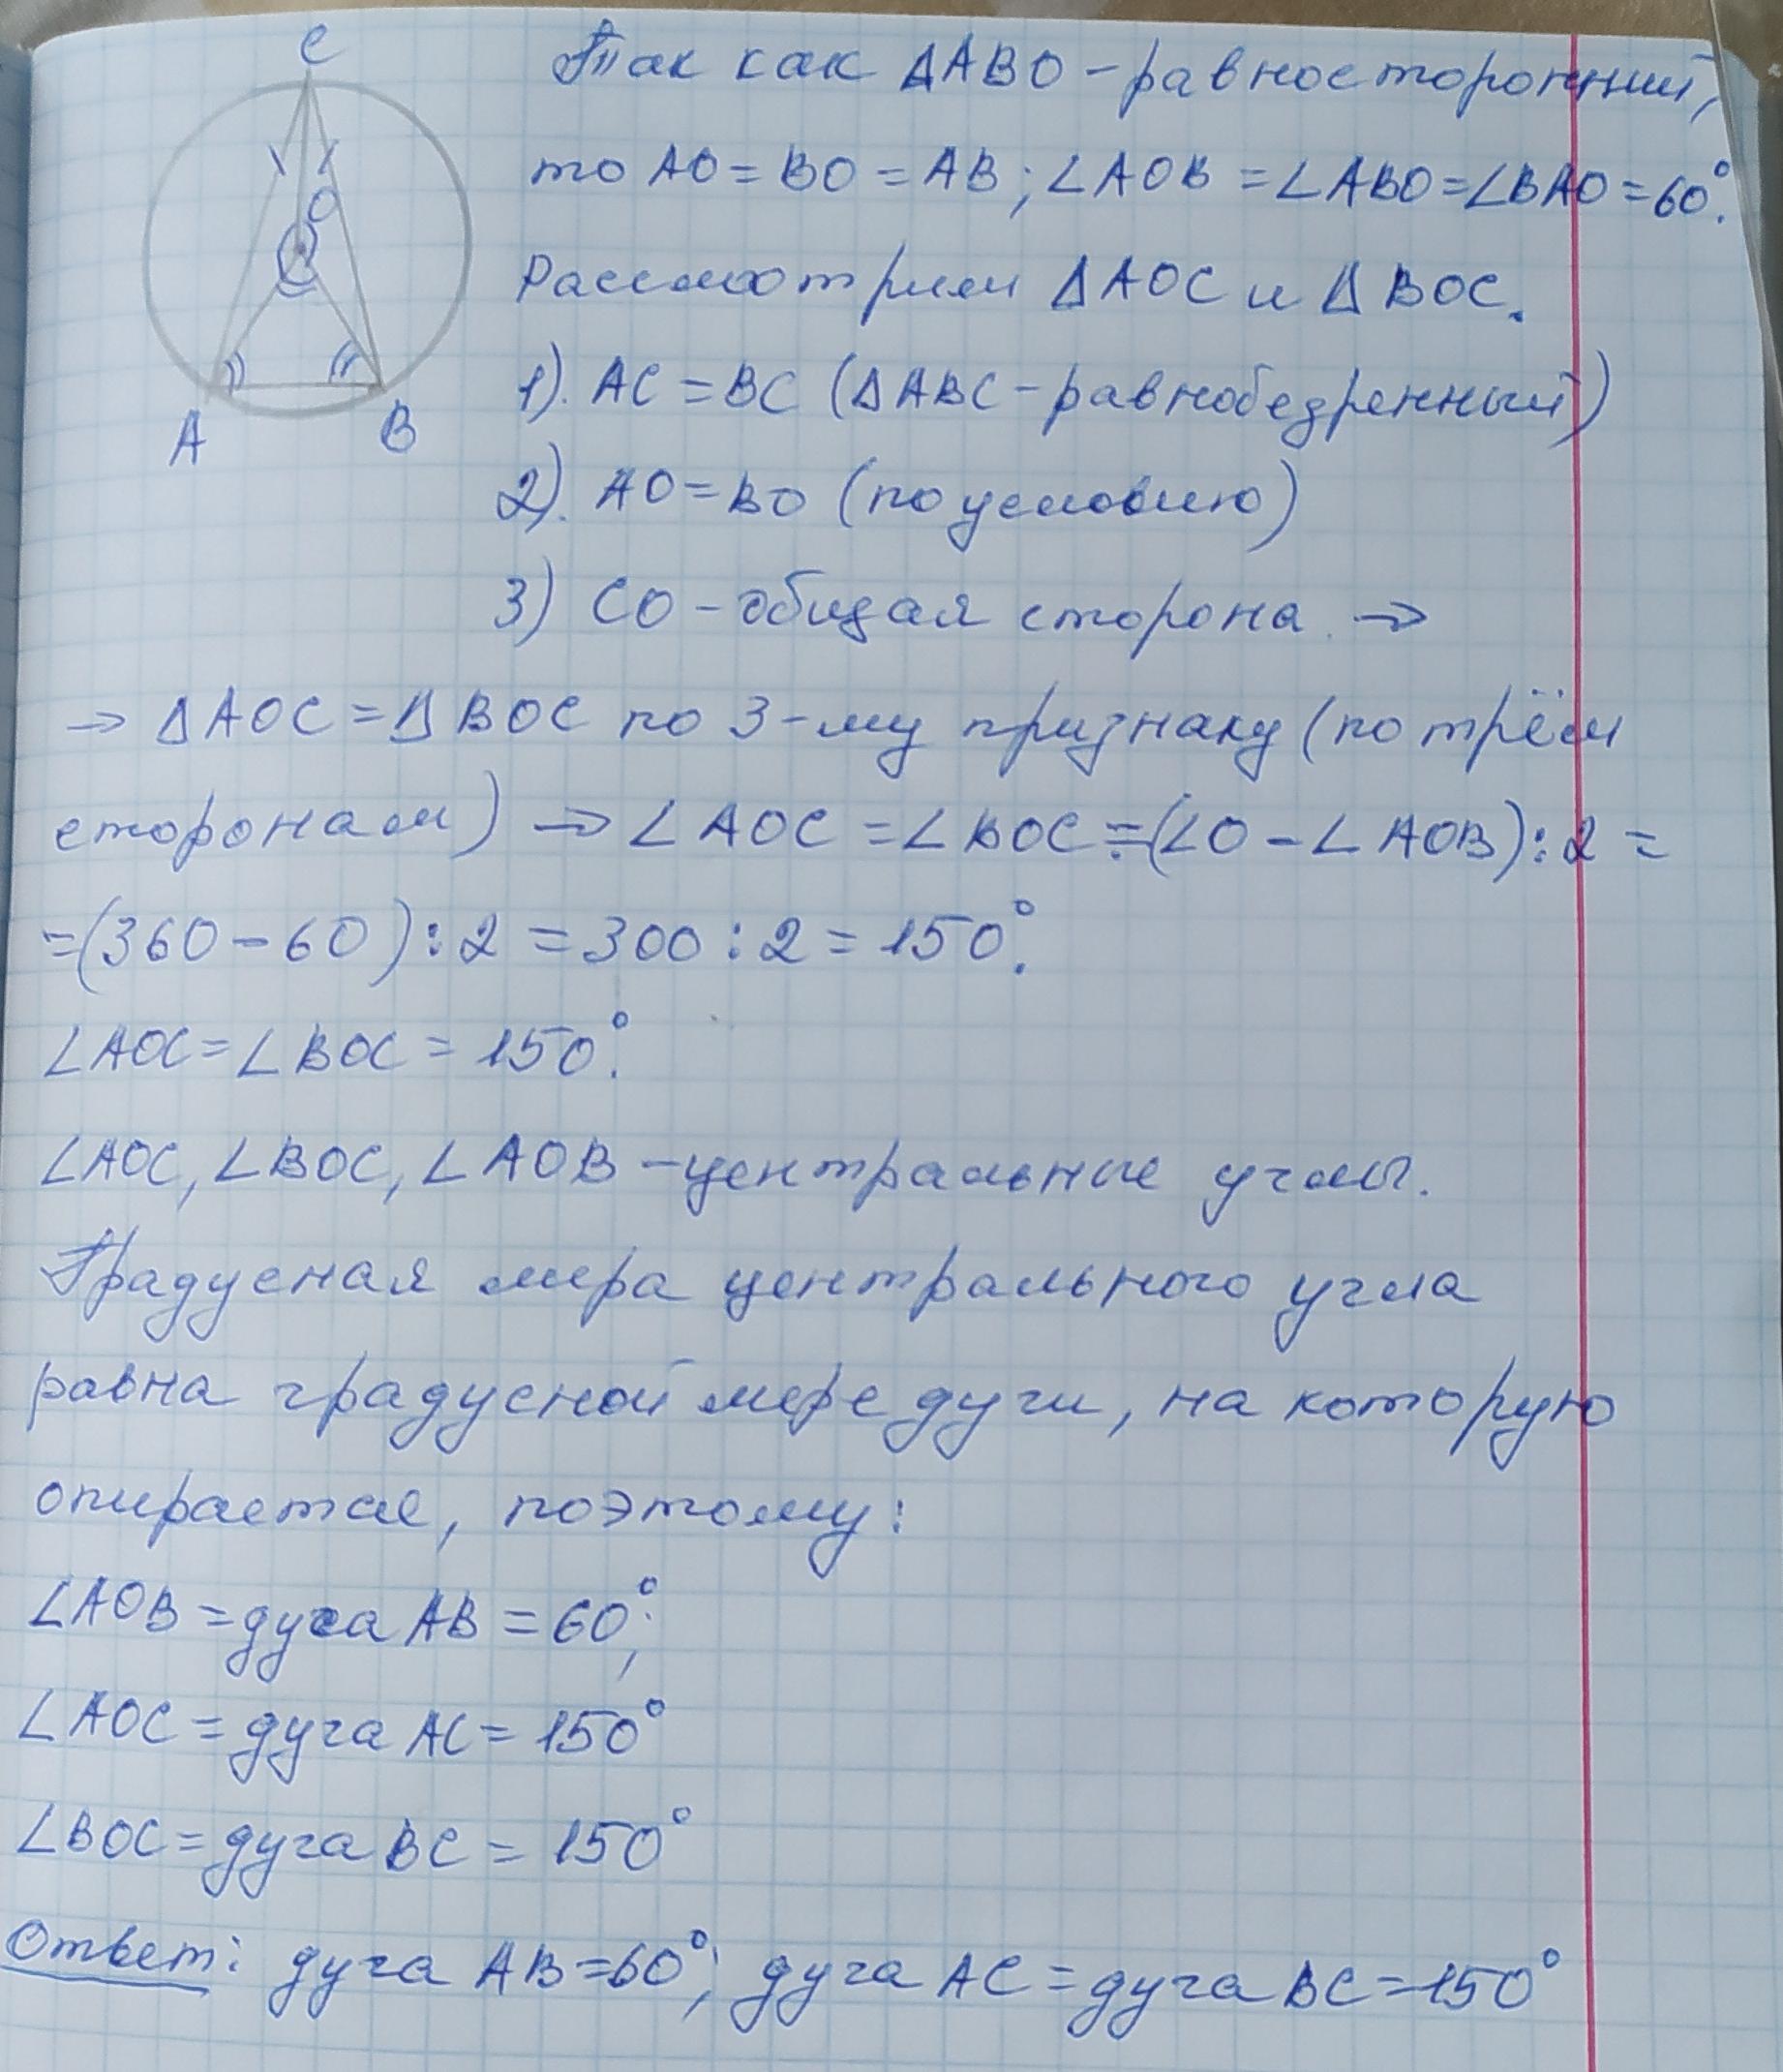 C
O
A
B
Так как ΔABO – равносторонний,
то AO = BO = AB; ∠AOB = ∠ABO = ∠BAO = 60°.
Рассмотрим ΔAOC и ΔBOC.
1). AC = BC (ΔABC – равнобедренный)
2). AO = BO (по условию)
3) CO – общая сторона. ⇒
⇒ ΔAOC = ΔBOC по 3-му признаку (по трём
сторонам) ⇒ ∠AOC = ∠BOC = (∠O – ∠AOB) : 2 =
= (360 – 60) : 2 = 300 : 2 = 150°.
∠AOC = ∠BOC = 150°.
∠AOC, ∠BOC, ∠AOB – центральные углы.
Градусная мера центрального угла
равна градусной мере дуги, на которую
опирается, поэтому:
∠AOB = дуга AB = 60°;
∠AOC = дуга AC = 150°
∠BOC = дуга BC = 150°
Ответ: дуга AB = 60°; дуга AC = дуга BC = 150°